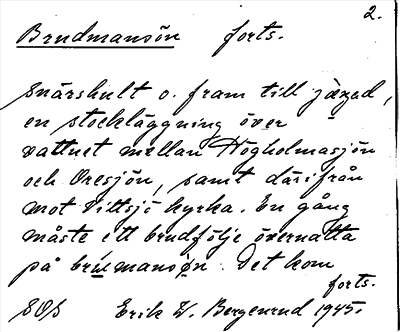 2.
Brudmansön forts.
Snärshult o. fram till jägud,
en stockläggning över
vattnet mellan Högholmasjön
och Oresjön, samt därifrån
mot Vittsjö kyrka. En gång
måste ett brudfölje övernatta
på brúmansøn. Det kom
forts.
SOS Erik W. Bergenrud 1945.